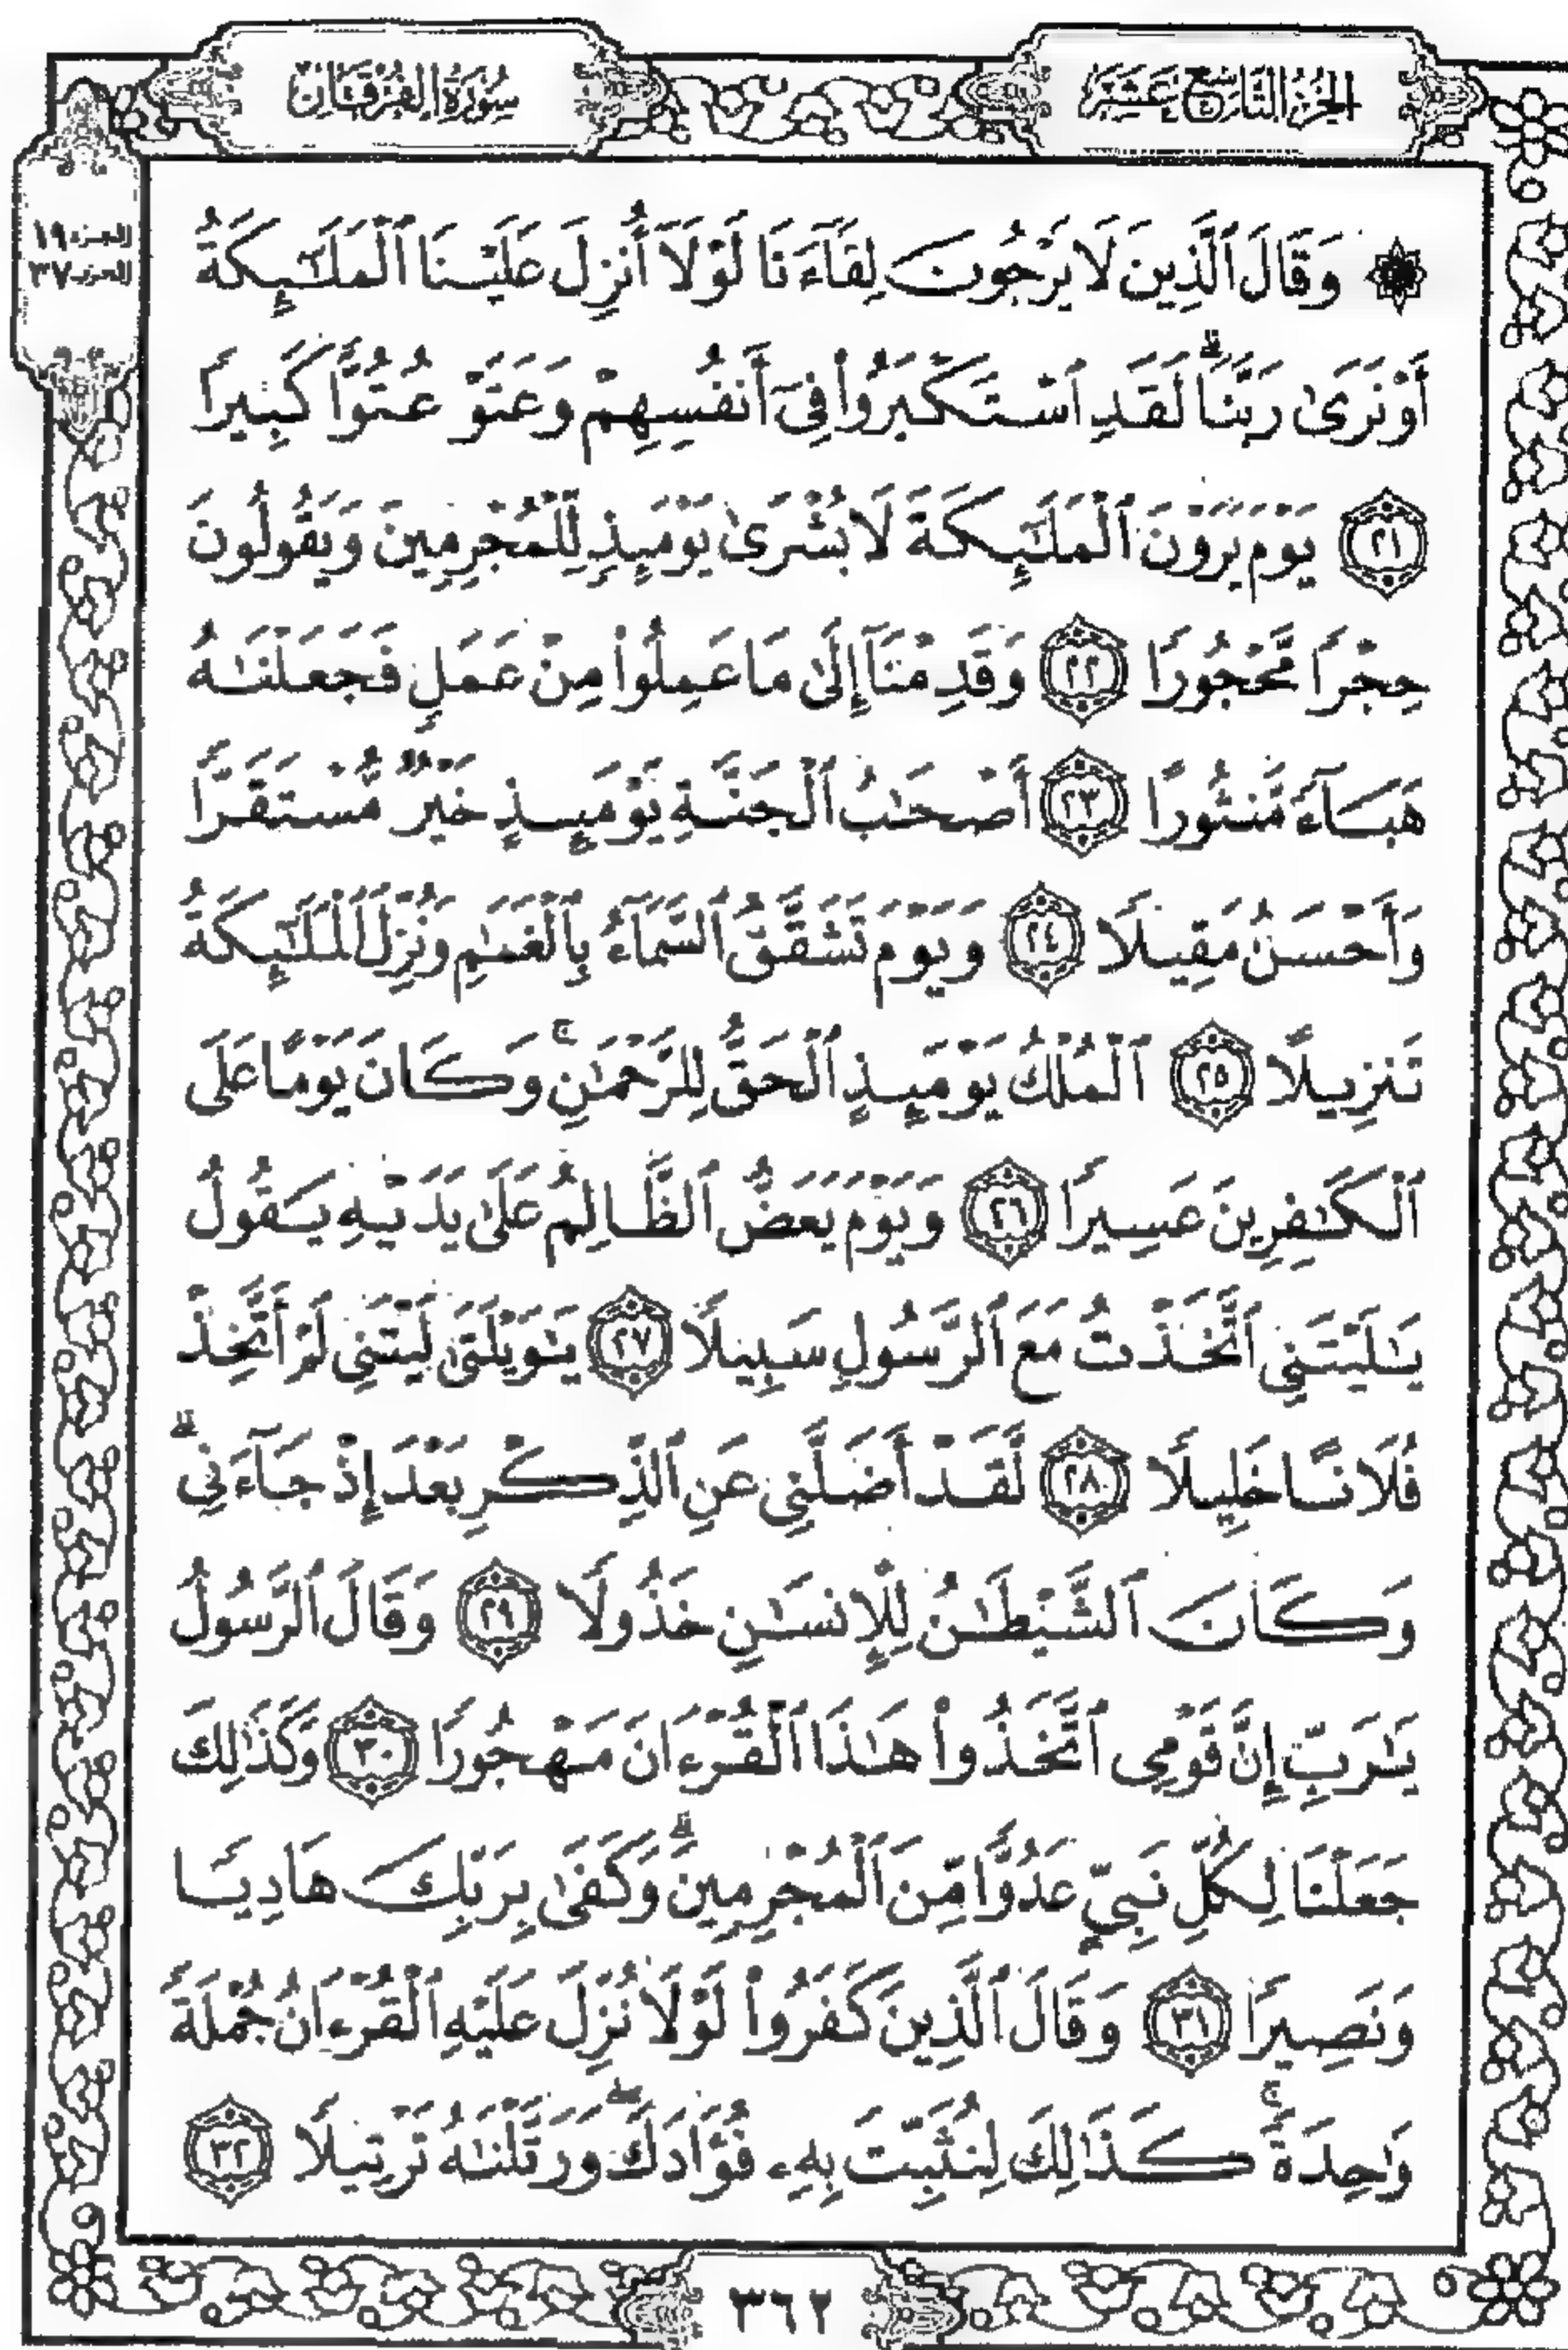 الجُزْءُ التَّاسِعَ عَشَرَ
سُورَةُ الفُرْقَانِ
الجزء ١٩
الحزب ٣٧
۞ وَقَالَ ٱلَّذِينَ لَا يَرْجُونَ لِقَآءَنَا لَوْلَآ أُنزِلَ عَلَيْنَا ٱلْمَلَٰٓئِكَةُ
أَوْ نَرَىٰ رَبَّنَا ۗ لَقَدِ ٱسْتَكْبَرُوا۟ فِىٓ أَنفُسِهِمْ وَعَتَوْ عُتُوًّا كَبِيرًا
٢١ يَوْمَ يَرَوْنَ ٱلْمَلَٰٓئِكَةَ لَا بُشْرَىٰ يَوْمَئِذٍ لِّلْمُجْرِمِينَ وَيَقُولُونَ
حِجْرًا مَّحْجُورًا ٢٢ وَقَدِمْنَآ إِلَىٰ مَا عَمِلُوا۟ مِنْ عَمَلٍ فَجَعَلْنَٰهُ
هَبَآءً مَّنثُورًا ٢٣ أَصْحَٰبُ ٱلْجَنَّةِ يَوْمَئِذٍ خَيْرٌ مُّسْتَقَرًّا
وَأَحْسَنُ مَقِيلًا ٢٤ وَيَوْمَ تَشَقَّقُ ٱلسَّمَآءُ بِٱلْغَمَٰمِ وَنُزِّلَ ٱلْمَلَٰٓئِكَةُ
تَنزِيلًا ٢٥ ٱلْمُلْكُ يَوْمَئِذٍ ٱلْحَقُّ لِلرَّحْمَٰنِ ۚ وَكَانَ يَوْمًا عَلَى
ٱلْكَٰفِرِينَ عَسِيرًا ٢٦ وَيَوْمَ يَعَضُّ ٱلظَّالِمُ عَلَىٰ يَدَيْهِ يَقُولُ
يَٰلَيْتَنِى ٱتَّخَذْتُ مَعَ ٱلرَّسُولِ سَبِيلًا ٢٧ يَٰوَيْلَتَىٰ لَيْتَنِى لَمْ أَتَّخِذْ
فُلَانًا خَلِيلًا ٢٨ لَّقَدْ أَضَلَّنِى عَنِ ٱلذِّكْرِ بَعْدَ إِذْ جَآءَنِى ۗ
وَكَانَ ٱلشَّيْطَٰنُ لِلْإِنسَٰنِ خَذُولًا ٢٩ وَقَالَ ٱلرَّسُولُ
يَٰرَبِّ إِنَّ قَوْمِى ٱتَّخَذُوا۟ هَٰذَا ٱلْقُرْءَانَ مَهْجُورًا ٣٠ وَكَذَٰلِكَ
جَعَلْنَا لِكُلِّ نَبِىٍّ عَدُوًّا مِّنَ ٱلْمُجْرِمِينَ ۗ وَكَفَىٰ بِرَبِّكَ هَادِيًا
وَنَصِيرًا ٣١ وَقَالَ ٱلَّذِينَ كَفَرُوا۟ لَوْلَا نُزِّلَ عَلَيْهِ ٱلْقُرْءَانُ جُمْلَةً
وَٰحِدَةً ۚ كَذَٰلِكَ لِنُثَبِّتَ بِهِۦ فُؤَادَكَ ۖ وَرَتَّلْنَٰهُ تَرْتِيلًا ٣٢
٣٦٢